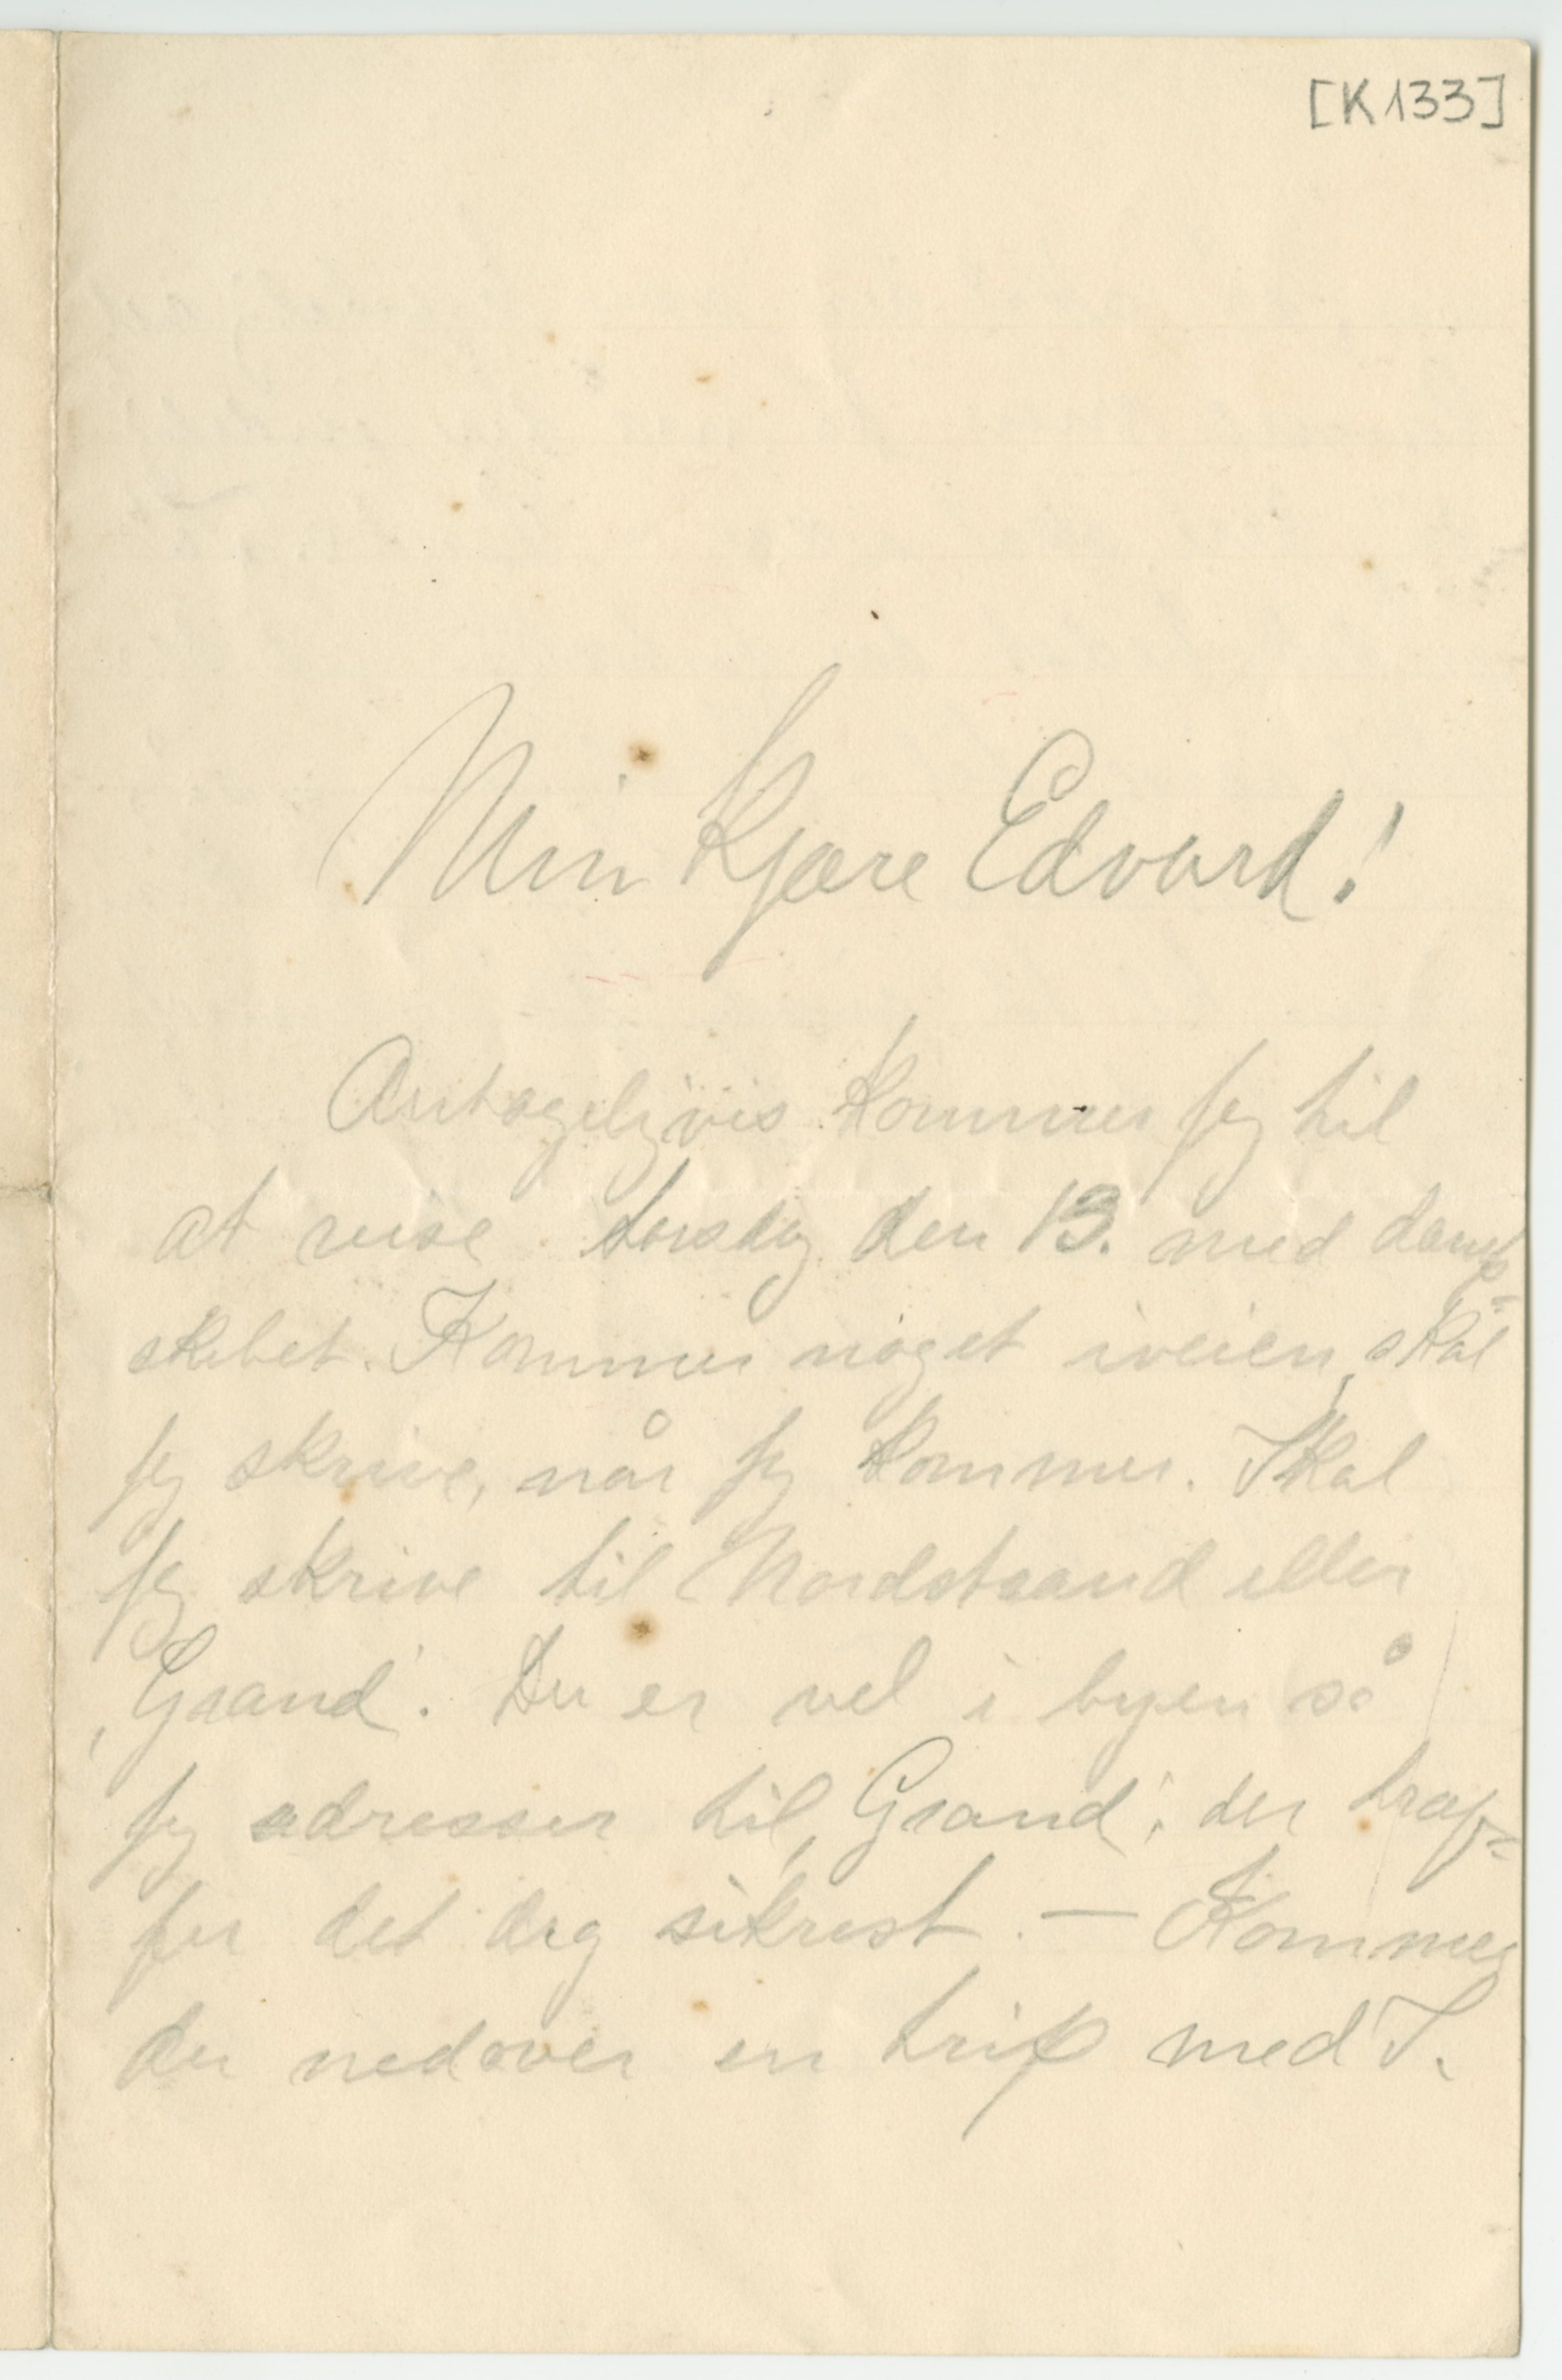 [K133]
Min kjære Edvard!
Antageligvis kommer jeg til
at reise torsdag den 13. med damp=
skibet. Kommer noget iveien, skal
jeg skrive, når jeg kommer. Skal
jeg skrive til Nordstrand eller
‚Grand‘. Du er vel i byen så
jeg adresser til ‚Grand‘; der træf=
fer det dig sikrest. — Kommer
du nedover en trip med T.